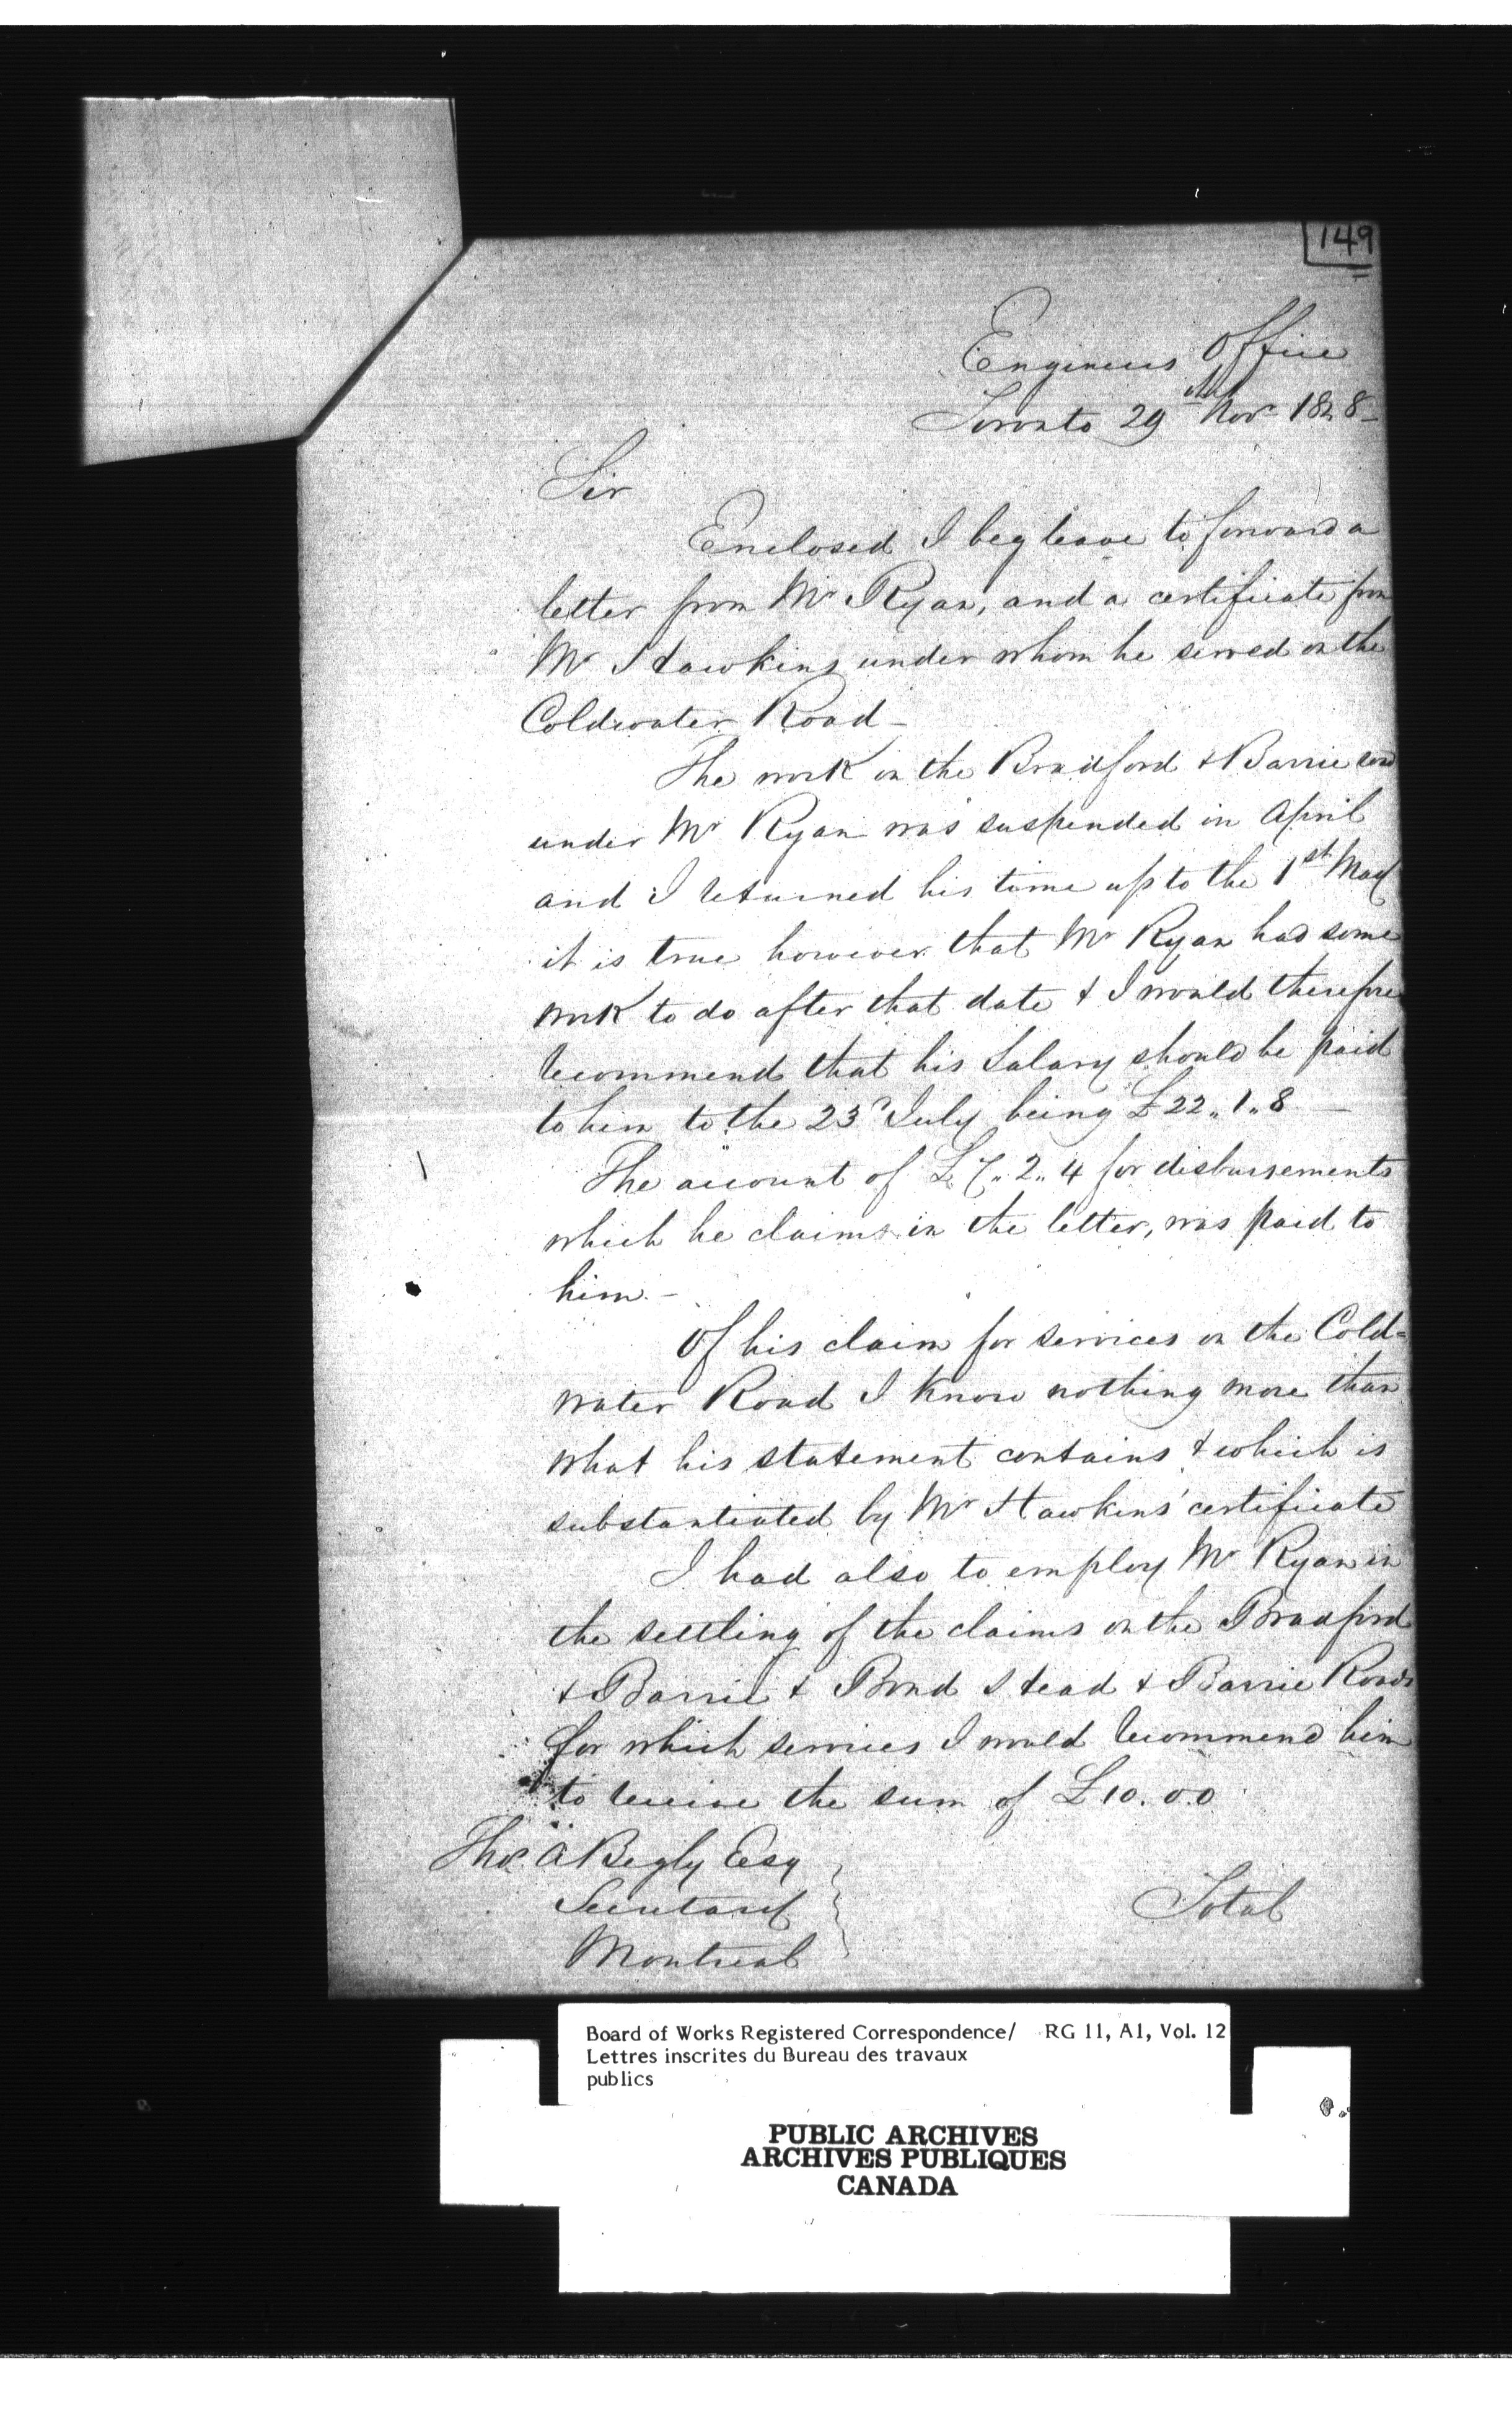 149
Engineers Office
Toronto 29th Nov 1848
Sir
Enclosed I beg leave to forward a
letter from Mr Ryan, and a certificate from
Mr Hawkins under whom he served on the
Coldwater Road -
The work on the Bradford & Barrie road
under Mr Ryan was suspended in April
and I returned his time up to the 1st May
it is true however that Mr Ryan had some
work to do after that date & I would therefore
recommend that his Salary should be paid
to him to the 23d July being £22..1..8 -
The account of £7..2..4 for disbursements
which he claims in the letter, was paid to
him -
Of his claim for services on the Cold=
water Road I know nothing more than
what his statement contains & which is
substantiated by Mr Hawkins' certificate
I had also to employ Mr Ryan in
the settling of the claims on the Bradford
& Barrie & Bond Stead & Barrie Roads
for which services I would recommend him
to receive the sum of £10.0.0
Thos A Begly Esq
Secretary
Montreal
Total
Board of Works Registered Correspondence/ RG 11, A1, Vol. 12
Lettres inscrites du Bureau des travaux
publics
PUBLIC ARCHIVES
ARCHIVES PUBLIQUES
CANADA